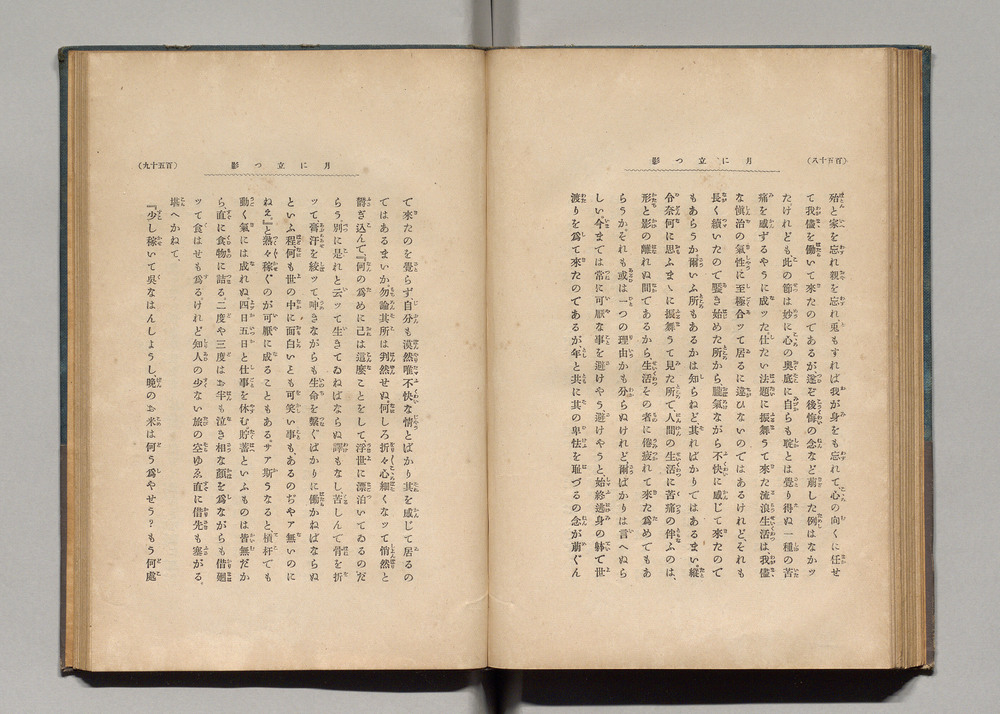 (百五十八)
月に立つ影
殆と家を忘れ親を忘れ兎もすれば我が身をも忘れて心の向くに任せ
て我儘を働いて來たのであるが、遂ぞ後悔の念など萠した例はなかッ
たけれども此の節は妙に心の奥底に自らも聢とは覺り得ぬ一種の苦
痛を感ずるやうに成ッた仕たい法題に振舞うて來た流浪生活は我儘
な愼治の氣性に至極合ッて居るに違ひないのではあるけれど、それも
長く續いたので飜き始めた所から、朧氣ながら不快に感じて來たので
もあらうか爾いふ所もあるかは知らねど、其ればかりではあるまい、縱
令奈何に思ふまゝに振舞うて見た所で、人間の生活に苦痛の伴ふのは、
形と影の離れぬ間であるから、生活その者に倦疲れて來た爲めでもあ
らうか、それも或は一つの理由かも分らぬけれど、爾ばかりは言へぬら
しい、今までは常に可厭な事を避けやう避けやうと、始終逃身の躰で世
渡りを爲て來たのであるが、年と共に其の卑怯を耻づるの念が萠ぐん
月に立つ影
(百五十九)
て來たのを覺らず自分も漠然唯不快な情とばかり其を感じて居るの
ではあるまいか勿論其所は判然せぬ、何しろ折々心細くなッて悄然と
鬱ぎ込んで、『何の爲めに己は這麼ことをして浮世に漂泊いてゐるのだ
らう、別に是れと云ッて生きてゐねばならぬ譯もなし苦しんで骨を折
ッて膏汗を絞ッて呻きながらも生命を繫ぐばかりに働かねばならぬ
といふ程何も世の中に面白いとも可笑い事も、あるのぢやァ無いのに
ねえ。』と熟々稼ぐのが可厭に成ることもある、サア斯うなると、槓杆でも
動く氣には成れぬ四日五日と仕事を休む貯蓄といふものは皆無だか
ら、直に食物に詰る二度や三度はお半も泣き相な顔を爲ながらも借廻
ッて食はせも爲る、けれど知人の少ない旅の空ゆゑ直に借先も塞がる、
堪へかねて、
『少し稼いて呉なはんしようし、晩のお米は何う爲やせう？もう何處